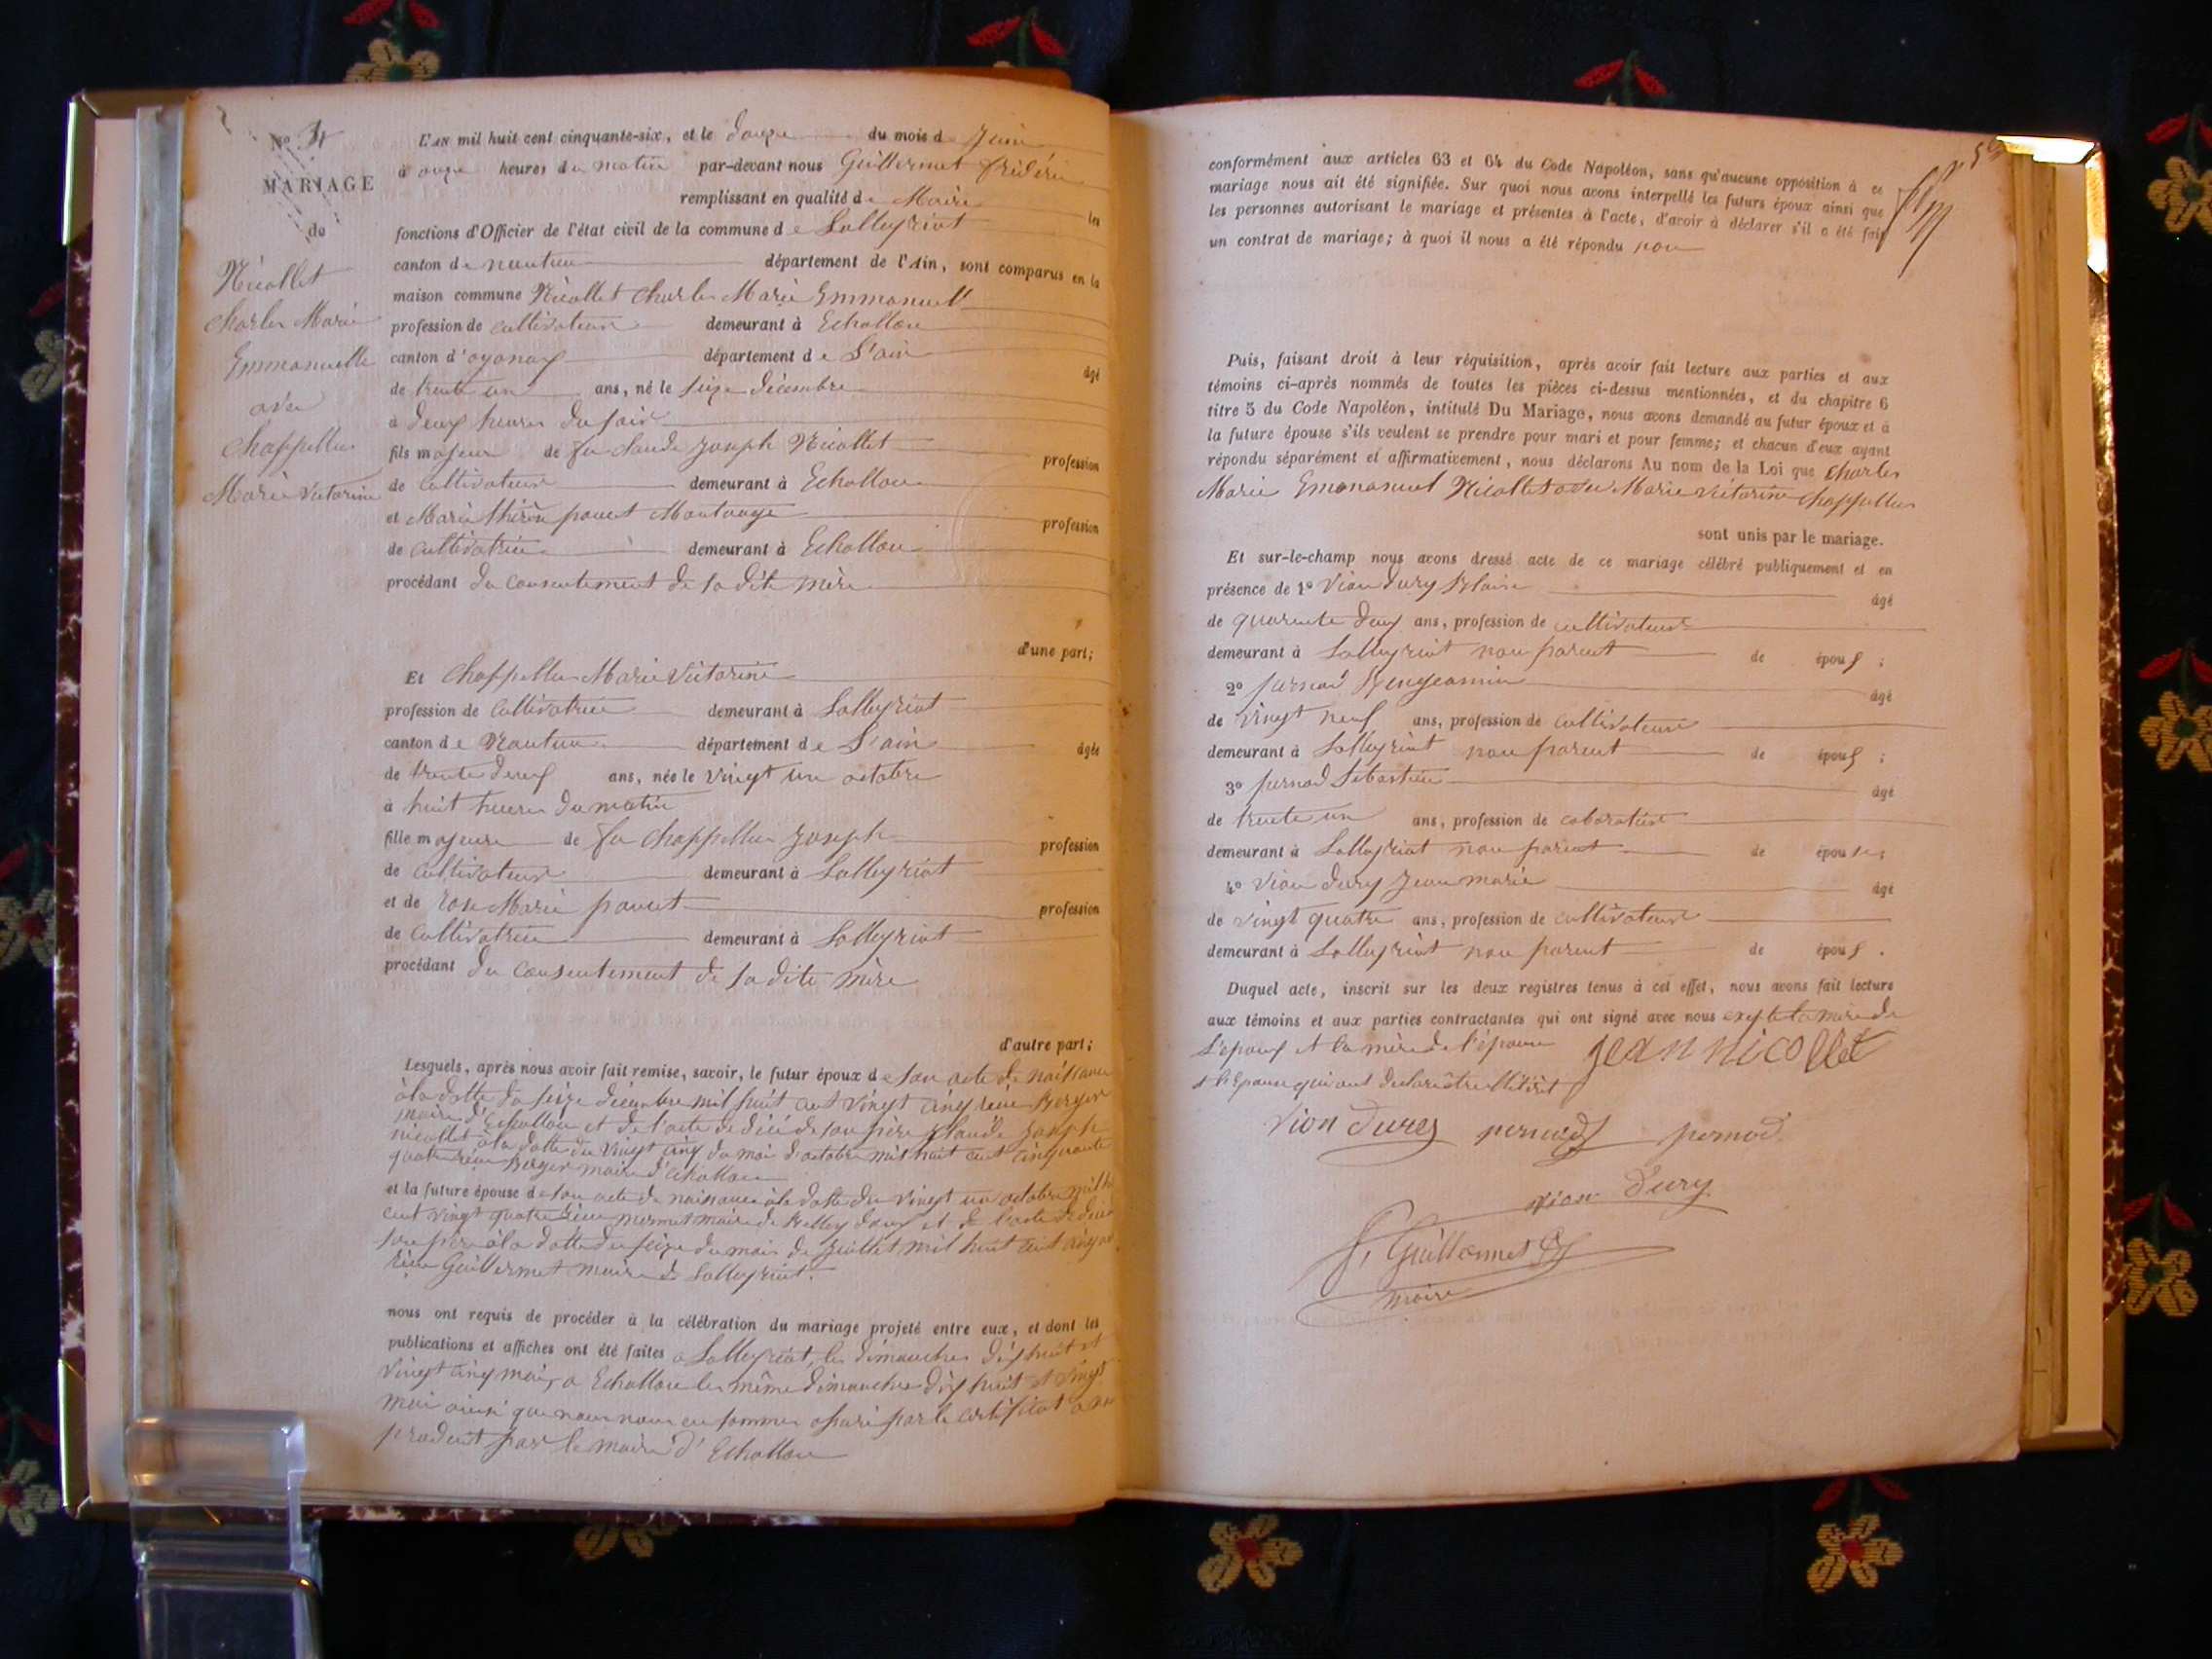 No 4
MARIAGE
de
Nicollet
Charles Marie
Emmanuelle
avec
Chappellu
Marie Victorine
L'AN mil huit cent cinquante-six, et le douze du mois de Juin
à onze heures du matin par-devant nous Guillermet frédéric
remplissant en qualité de Maire les
fonctions d'Officier de l'état civil de la commune de Lalleyriat
canton de nantua département de l'Ain, sont comparus en la
maison commune Nicollet Charles Marie Emmanuell
profession de cultivateur demeurant à Echallon
canton d'oyonax département de L'ain âgé
de trente un ans, né le seize décembre
à deux heures du soir
fils majeur de feu claude Joseph Nicollet profession
de cultivateur demeurant à Echallon
et Marie thérèse poncet Montange profession
de cultivatrice demeurant à Echallon
procédant du consentement de sa dite mère
d'une part;
Et Chappellu Marie Victorine
profession de cultivatrice demeurant à Lalleyriat
canton de Nantua département de L'ain âgée
de trente deux ans, née le vingt un octobre
à huit heures du matin
fille majeure de feu Chappellu Joseph profession
de cultivateur demeurant à Lalleyriat
et de Rose Marie poncet profession
de cultivatrice demeurant à Lalleyriat
procédant du consentement de sa dite mère
d'autre part;
Lesquels, après nous avoir fait remise, savoir, le futur époux de son acte de naissance
à la datte du seize décembre mil huit cent vingt cinq Berger
maire d'Echallon et de l'acte de décé de son père Claude Joseph
nicollet à la datte du vingt cinq du mois d'octobre mil huit cent cinquante
quatre Berger maire d'echallon
et la future épouse de son acte de naissance à la datte du vingt un octobre
cent vingt quatre maire de Belleydoux et de l'acte de
son père à la datte du seize du mois de Juillet mil huit cent
Guillermet maire de Lalleyriat.
nous ont requis de procéder à la célébration du mariage projeté entre eux, et dont les
publications et affiches ont été faites a Lalleyriat, les dimanches dix huit et
vingt cinq mai, a Echallon les même dimanches dix huit et vingt
mai ainsi que nous nous en sommes assuré par le certificat a nous
produit par le maire d'Echallon
conformément aux articles 63 et 64 du Code Napoléon, sans qu'aucune opposition à ce
mariage nous ait été signifiée. Sur quoi nous avons interpellé les futurs époux ainsi que
les personnes autorisant le mariage et présentes à l'acte, d'avoir à déclarer s'il a été fait
un contrat de mariage; à quoi il nous a été répondu non
Puis, faisant droit à leur réquisition, après avoir fait lecture aux parties et aux
témoins ci-après nommés de toutes les pièces ci-dessus mentionnées, et du chapitre 6
titre 5 du Code Napoléon, intitulé Du Mariage, nous avons demandé au futur époux et à
la future épouse s'ils veulent se prendre pour mari et pour femme; et chacun d'eux ayant
répondu séparément et affirmativement, nous déclarons Au nom de la Loi que Charles
Marie Emmanuel Nicollet avec Marie Victorine Chappellu
sont unis par le mariage.
Et sur-le-champ nous avons dressé acte de ce mariage célébré publiquement et en
présence de 1º Vion dury Blaise âgé
de quarante deux ans, profession de cultivateur
demeurant à Lalleyriat non parent de époux ;
2º pernod Benjeamin âgé
de vingt neuf ans, profession de cultivateur
demeurant à Lalleyriat non parent de époux ;
3º pernod Sébastien âgé
de trente un ans, profession de cabaratier
demeurant à Lalleyriat non parent de époux ;
4º Vion dury Jean marie âgé
de vingt quatre ans, profession de cultivateur
demeurant à Lalleyriat non parent de époux .
Duquel acte, inscrit sur les deux registres tenus à cet effet, nous avons fait lecture
aux témoins et aux parties contractantes qui ont signé avec nous exepté la mère de
L'époux et la mère de l'épouse jean nicollet
et l'épouse qui ont declaré être illitéré
Vion Dury pernod pernod
vion Dury
f. Guillermet
maire